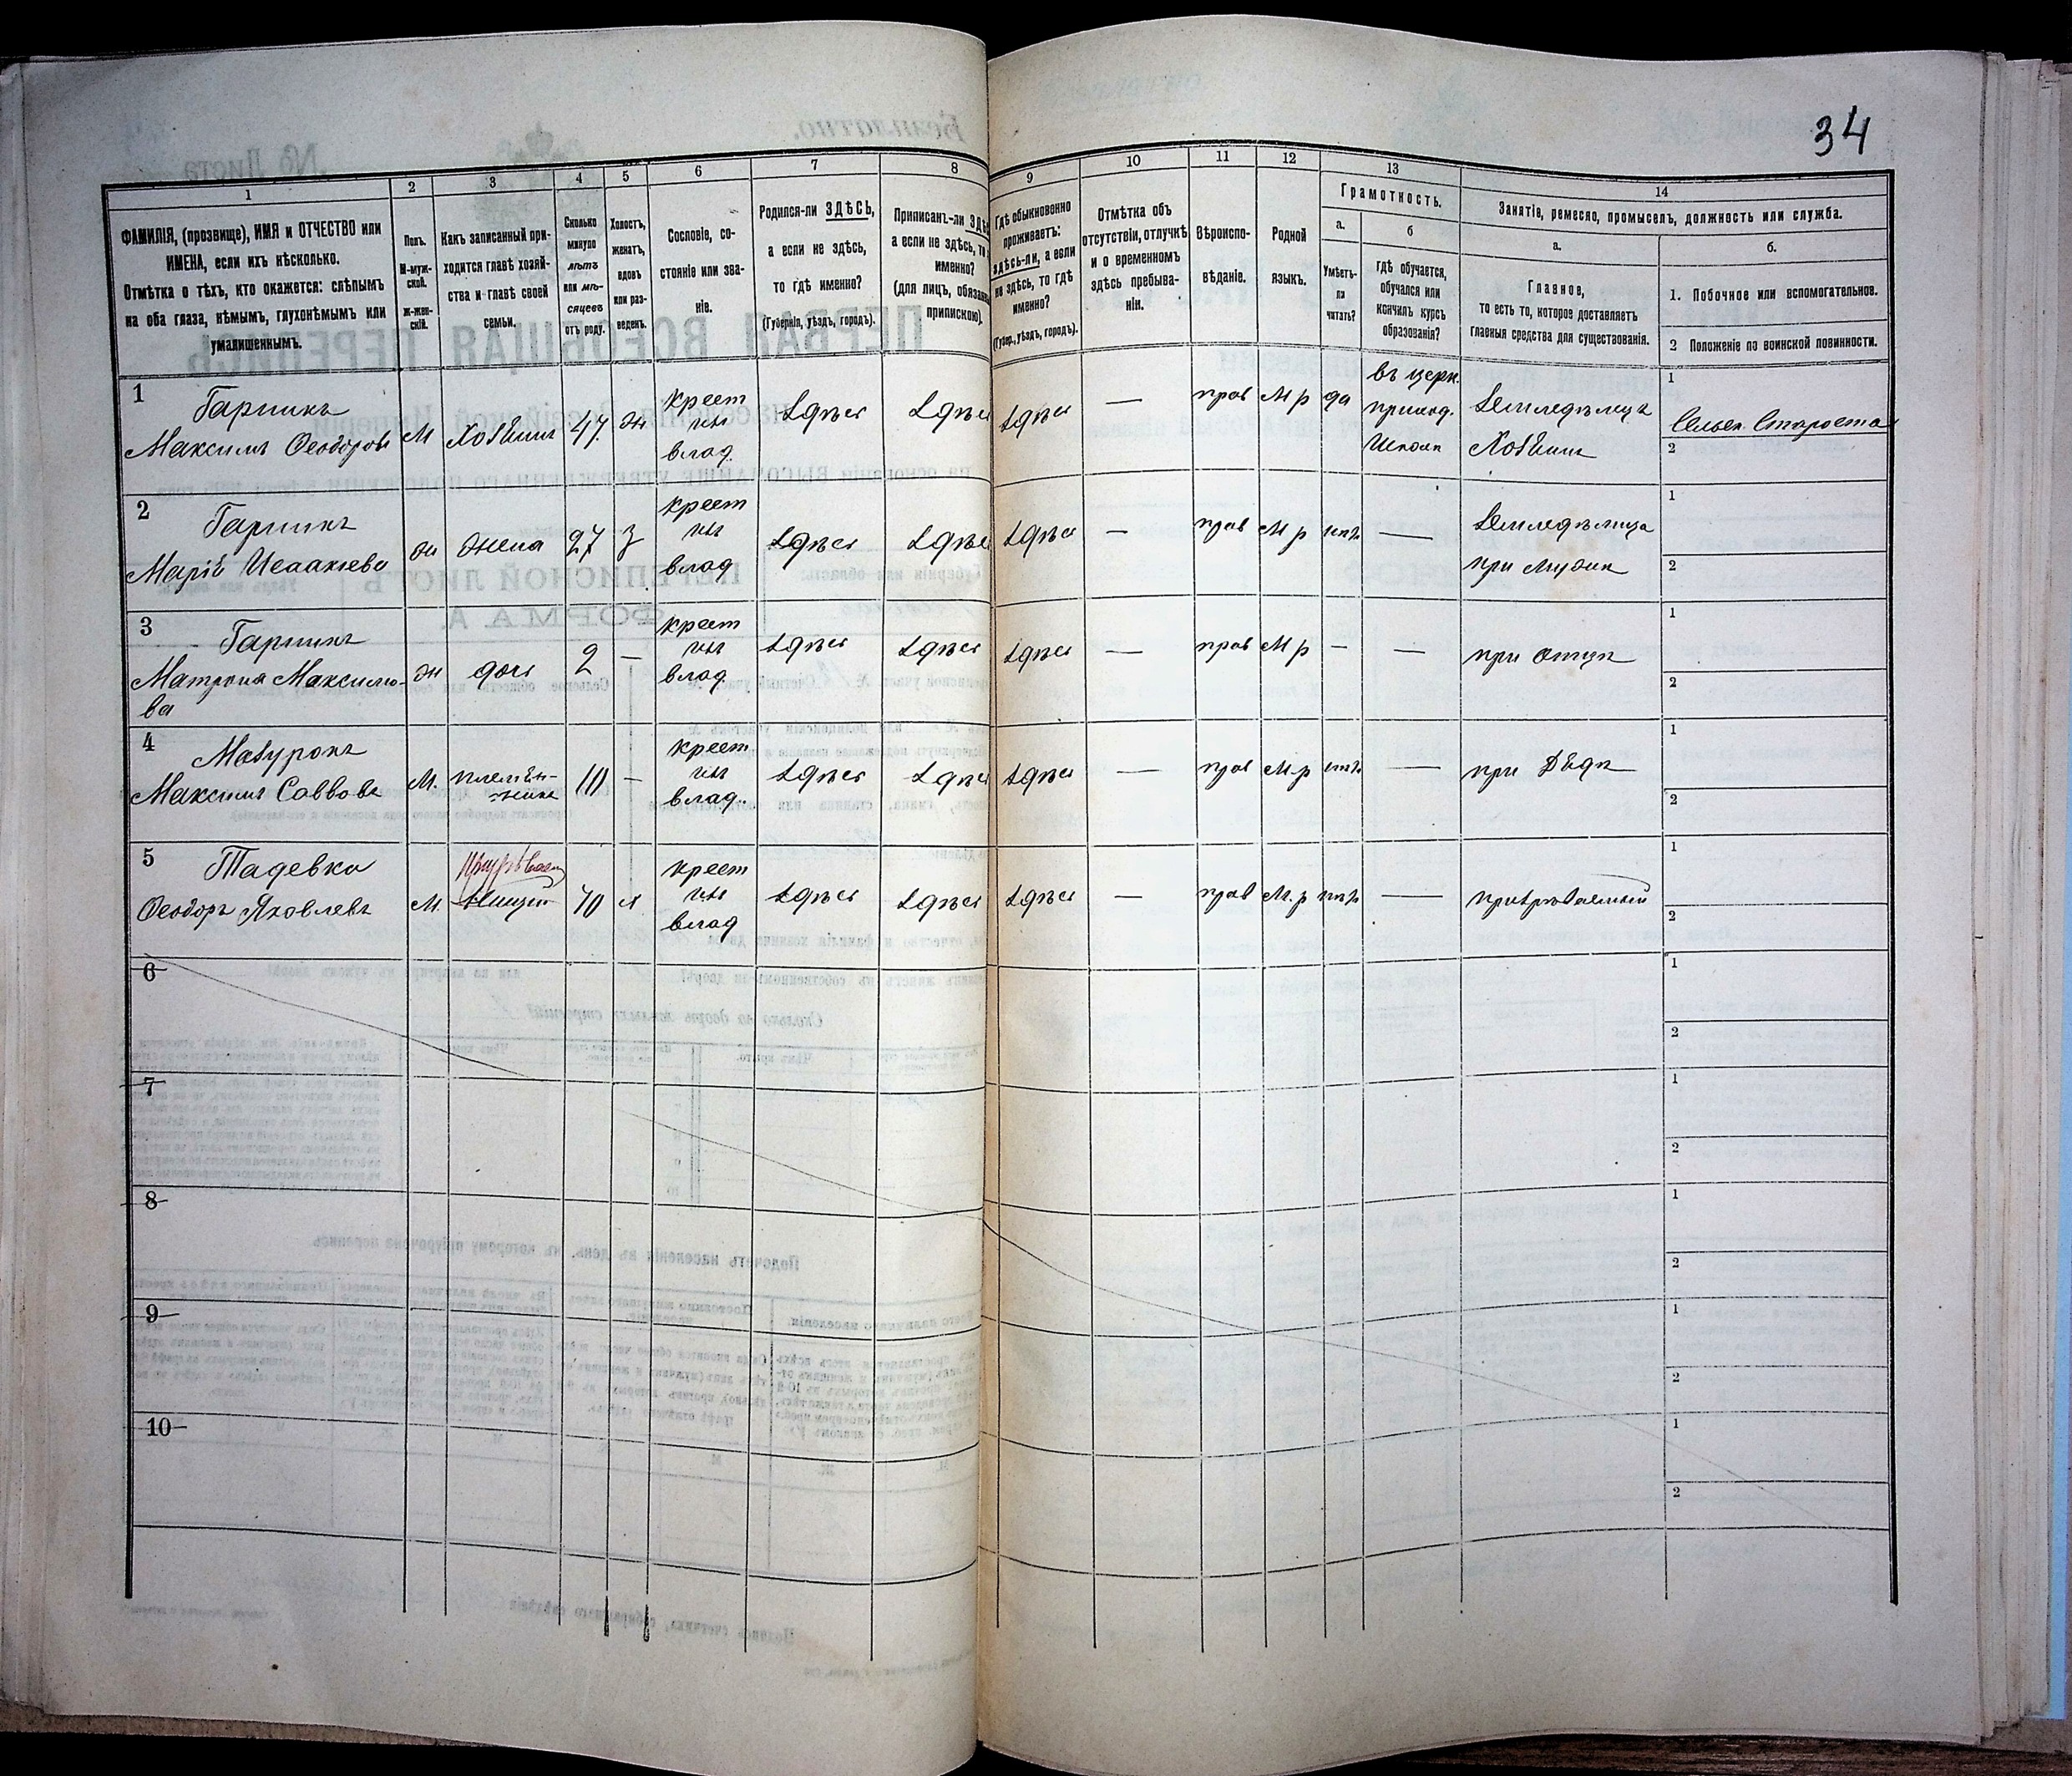 34
1
2
3
4
5
6
7
8
9
10
11
12
13
14
ФАМИЛІЯ, (прозвище), ИМЯ и ОТЧЕСТВО или
ИМЕНА, если ихъ нѣсколько.
Отмѣтка о тѣхъ, кто окажется: слѣпымъ
на оба глаза, нѣмымъ, глухонѣмымъ или
умалишеннымъ.
Полъ.
М-муж-
ской.
ж-жен-
скій.
Какъ записанный при-
ходится главѣ хозяй-
ства и главѣ своей
семьи.
Сколько
минуло
лѣтъ
или мѣ-
сяцевъ
отъ роду.
Холостъ,
женатъ,
вдовъ
или раз-
веденъ.
Сословіе, со-
стояніе или зва-
ніе.
Родился-ли ЗДѢСЬ,
а если не здѣсь,
то гдѣ именно?
(Губернія, уѣздъ, городъ).
Приписанъ-ли
а если не здѣсь,
именно?
(для лицъ,
припискою)
Гдѣ обыкновенно
проживаетъ:
здѣсь-ли, а если
не здѣсь, то гдѣ
именно?
(Губер., уѣздъ, городъ).
Отмѣтка объ
отсутствіи, отлучкѣ
и о временномъ
здѣсь пребыва-
ніи.
Вѣроиспо-
вѣданіе.
Родной
языкъ.
Грамотность.
а.
б
Умѣетъ-
ли
читать?
гдѣ обучается,
обучался или
кончилъ курсъ
образованія?
Занятіе, ремесло, промыселъ, должность или служба.
а.
б.
Главное,
то есть то, которое доставляетъ
главныя средства для существованія.
1. Побочное или вспомогательное.
2 Положеніе по воинской повинности.
1
Гаршикъ
Максимъ Ѳеодоровъ
М
Хозяинъ
47
ж
крест
изъ
влад.
Здѣсь
Здѣсь
Здѣсь
—
прав
М р
да
въ церк.
приход.
Школѣ
Земледѣлецъ
Хозяинъ
1
Сельск. Староста
2
2
Гаршикъ
Марія Исаакіева
ж
жена
27
з
крест
изъ
влад
Здѣсь
Здѣсь
Здѣсь
—
прав
М р
нѣтъ
—
Земледѣлица
при мужѣ
1
2
3
Гаршикъ
Матрона Максимо-
ва
ж
дочь
2
—
крест
изъ
влад.
Здѣсь
Здѣсь
Здѣсь
—
прав
М р
—
—
при отцѣ
1
2
4
Мазурокъ
Максимъ Саввовъ
М.
племян-
никъ
10
—
крест.
изъ
влад.
Здѣсь
Здѣсь
Здѣсь
—
прав
М.р
нѣтъ
—
при Дядѣ
1
2
5
Тадевка
Ѳеодоръ Яковлевъ
М.
Нищій
70
крест
изъ
влад
Здѣсь
Здѣсь
Здѣсь
—
прав
М. р
нѣтъ
—
призрѣваемый
1
2
6
1
2
7
1
2
8
1
2
9
1
2
10
1
2